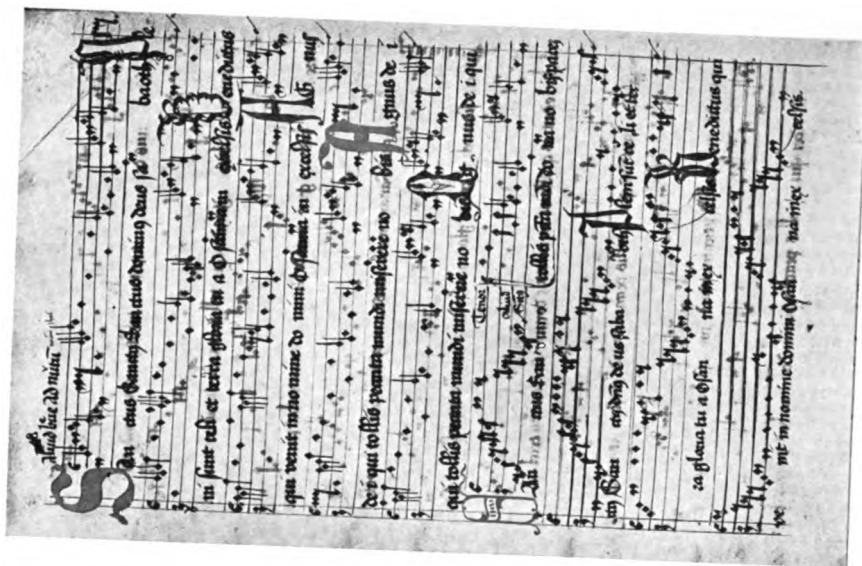 San ctus Sanctus Sanctus dominus deus sa baoth Ple
ni sunt celi et terra gloria tu a Osanna in excelsis Benedictus
qui venit in no mine do mini Osanna in excelsis Agnus
de i qui tollis peccata mundi miserere no bis Agnus de i
qui tollis peccata mundi miserere no bis Agnus de i qui
Tenor
tollis peccata mundi do na no bis pacem
us San ctus de us saba leni sunt ce li et ter
ra gloria tu a Osan na in ex celsis Benedictus qui
ve nit in nomine domini Osan na in ex celsis